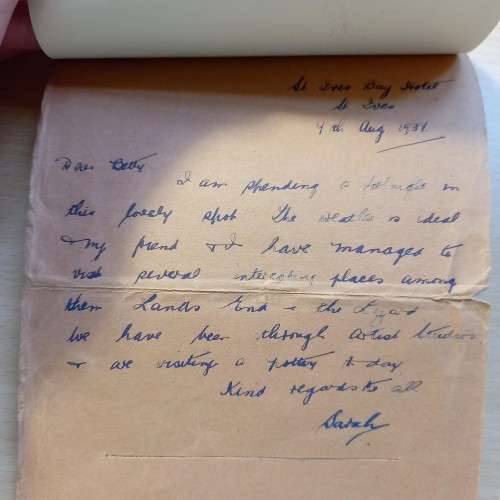 St Ives Bay Hotel
St Ives
4th Aug 1931.
Dear Betty
I am spending a fortnight in
this lovely spot. The weather is ideal
& my friend & I have managed to
visit several interesting places among
them Lands End & the Lizard
We have been through artist studios
& are visiting a pottery to day
Kind regards to all
Sarah